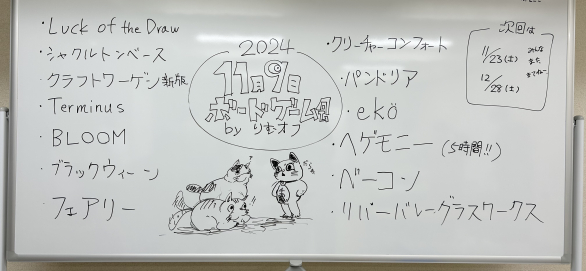 ・Luck of the Draw
・シャクルトンベース
・クラフトワーゲン新版
・Terminus
・BLOOM
・ブラックウィーン
・フェアリー
2024
11月9日
ボードゲーム会
by りむオフ
・クリーチャーコンフォート
・パンドリア
・ekö
・ヘゲモニー (5時間!!)
・ベーコン
・リバーバレーグラスワークス
次回は
11/23(土)
12/28(土)
みんな
また